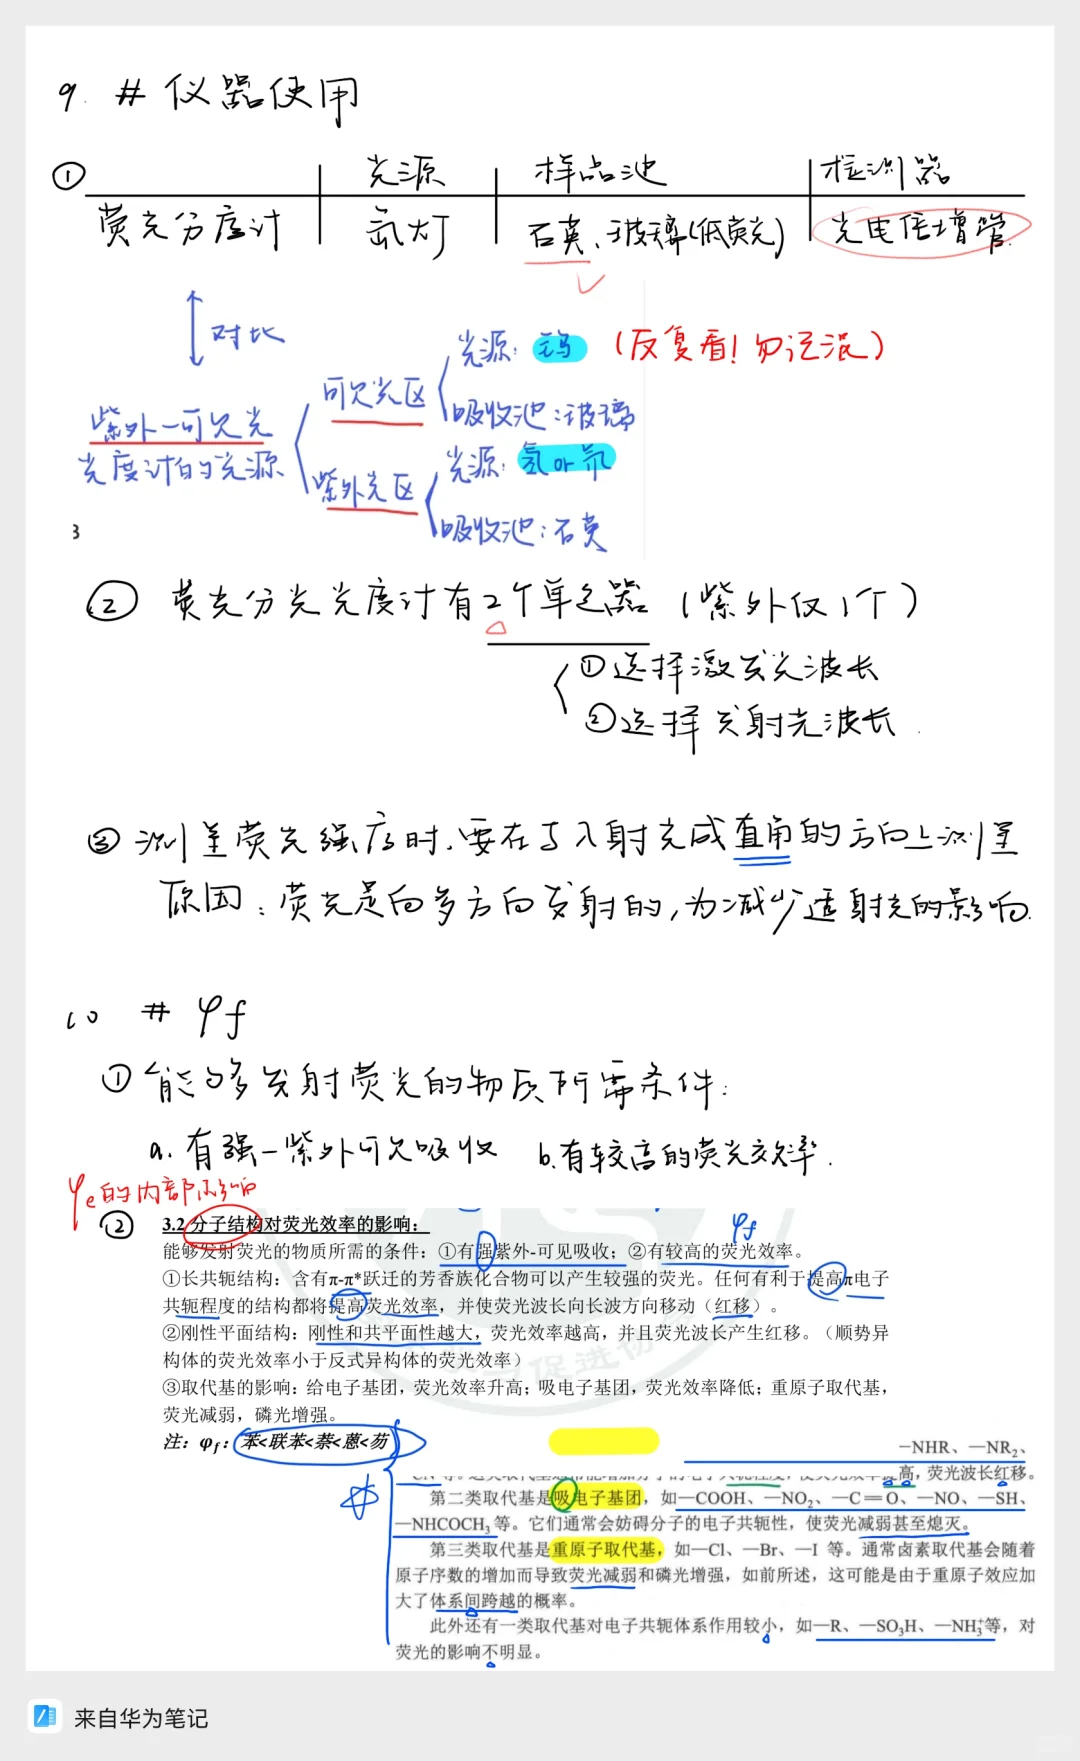 9. # 仪器使用
① 光源 样品池 检测器
荧光分度计 氙灯 石英、玻璃(低荧光) 光电倍增管.
对比
光源: 钨 (反复看!勿记混)
可见光区
吸收池:玻璃
紫外-可见光
光度计的光源
光源: 氢or氘
紫外光区
吸收池:石英
3
② 荧光分光光度计有2个单色器 (紫外仅1个)
①选择激发光波长
②选择发射光波长.
③ 测量荧光强度时,要在与入射光成直角的方向上测量
原因:荧光是向多方向发射的,为减少透射光的影响.
10 # φf
① 能够发射荧光的物质所需条件:
a. 有强-紫外可见吸收 b.有较高的荧光效率.
φe的内部影响
② 3.2 分子结构对荧光效率的影响: φf
能够发射荧光的物质所需的条件:①有强紫外-可见吸收;②有较高的荧光效率。
①长共轭结构:含有π-π*跃迁的芳香族化合物可以产生较强的荧光。任何有利于提高π电子
共轭程度的结构都将提高荧光效率,并使荧光波长向长波方向移动(红移)。
②刚性平面结构:刚性和共平面性越大,荧光效率越高,并且荧光波长产生红移。(顺势异
构体的荧光效率小于反式异构体的荧光效率)
③取代基的影响:给电子基团,荧光效率升高;吸电子基团,荧光效率降低;重原子取代基,
荧光减弱,磷光增强。
注:φf:苯<联苯<萘<蒽<芴
—NHR、—NR₂、
提高,荧光波长红移。
第二类取代基是吸电子基团,如—COOH、—NO₂、—C=O、—NO、—SH、
—NHCOCH₃等。它们通常会妨碍分子的电子共轭性,使荧光减弱甚至熄灭。
第三类取代基是重原子取代基,如—Cl、—Br、—I 等。通常卤素取代基会随着
原子序数的增加而导致荧光减弱和磷光增强,如前所述,这可能是由于重原子效应加
大了体系间跨越的概率。
此外还有一类取代基对电子共轭体系作用较小,如—R、—SO₃H、—NH₃⁺等,对
荧光的影响不明显。
来自华为笔记